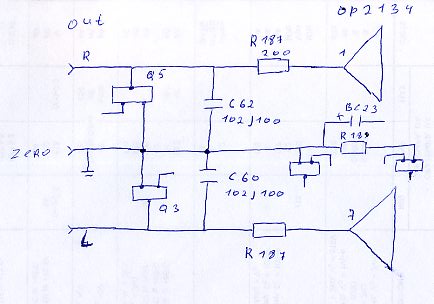 OP2134
out
R 181
200
R
1
Q5
C62
102J100
BC23
+
R 189
Zero
C60
102J100
Q3
7
L
R 187